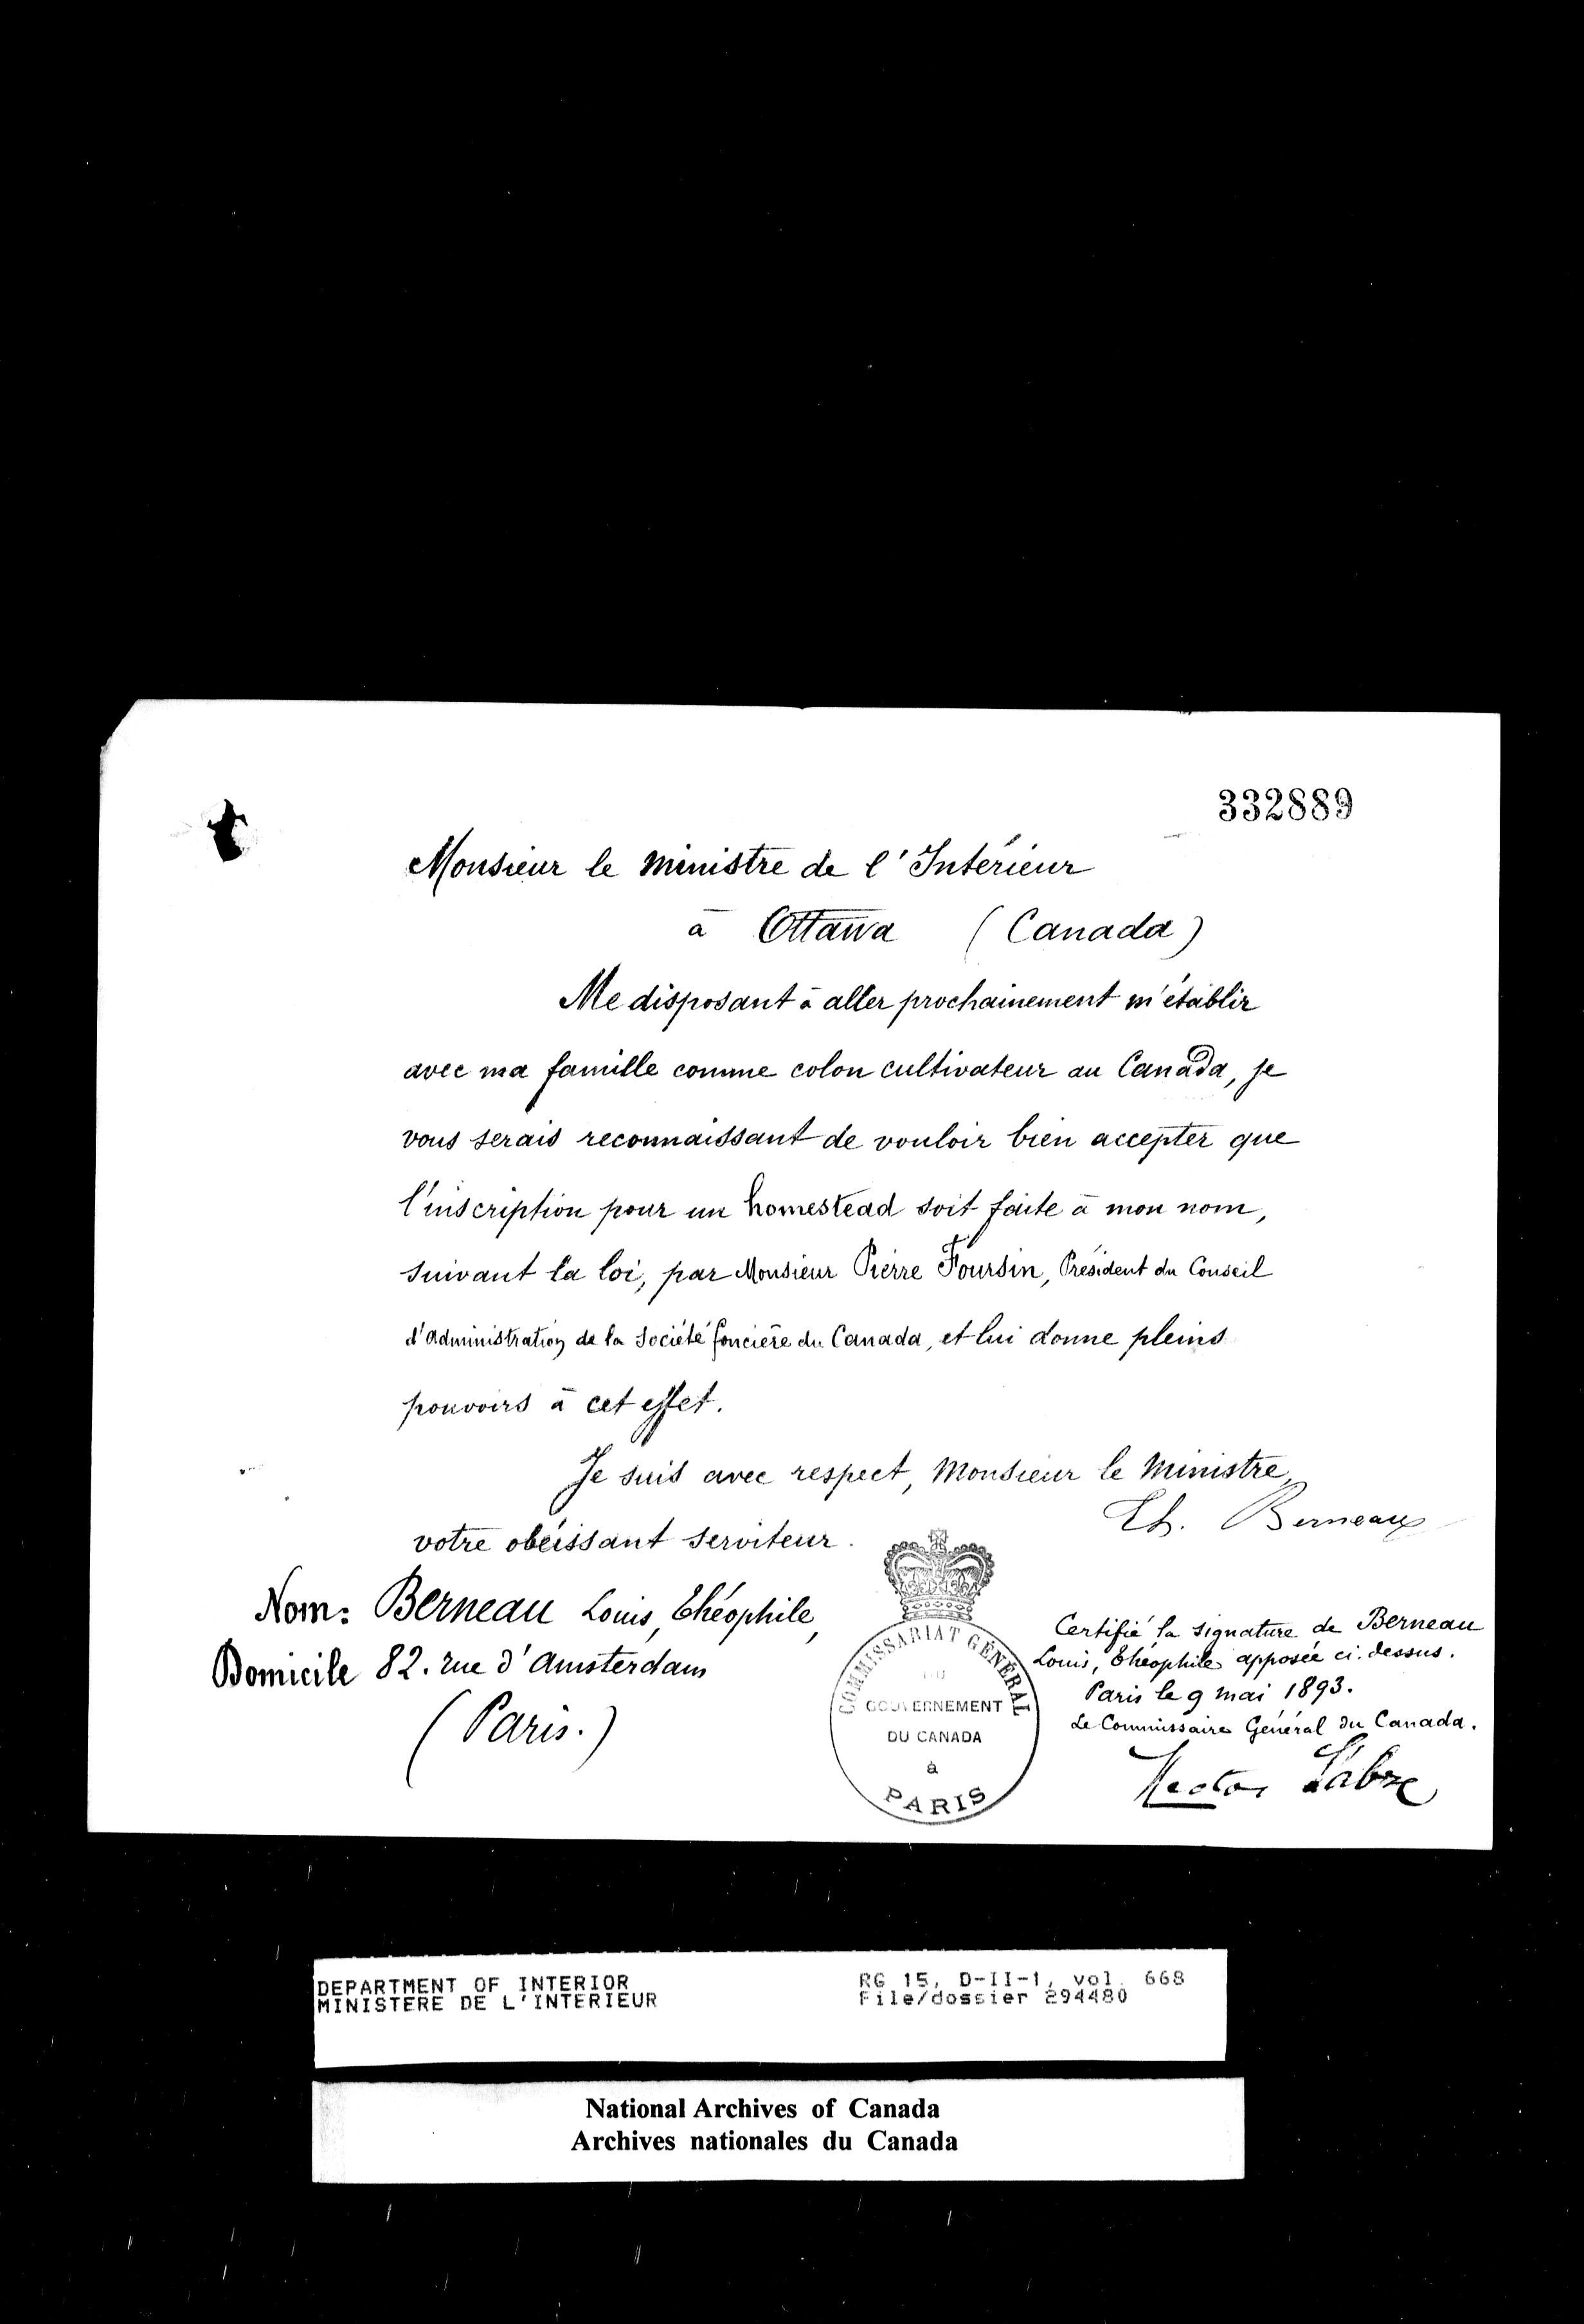 332889
Monsieur le Ministre de l'Intérieur
à Ottawa (Canada)
Me disposant à aller prochainement m'établir
avec ma famille comme colon cultivateur au Canada, je
vous serais reconnaissant de vouloir bien accepter que
l'inscription pour un homestead soit faite à mon nom,
suivant la loi, par Monsieur Pierre Foursin, Président du Conseil
d'Administration de la Société foncière du Canada, et lui donne pleins
pouvoirs à cet effet.
Je suis avec respect, Monsieur le Ministre,
votre obéissant serviteur.
Th. Berneau
Nom: Berneau Louis, Théophile,
Domicile 82. rue d'Amsterdam
(Paris.)
COMMISSARIAT GÉNÉRAL
DU
GOUVERNEMENT
DU CANADA
à
PARIS
Certifié la signature de Berneau
Louis, Théophile apposée ci-dessus.
Paris le 9 mai 1893.
Le Commissaire Général du Canada.
Hector Fabre
DEPARTMENT OF INTERIOR
MINISTERE DE L'INTERIEUR
RG 15, D-II-1, vol. 668
File/dossier 294480
National Archives of Canada
Archives nationales du Canada